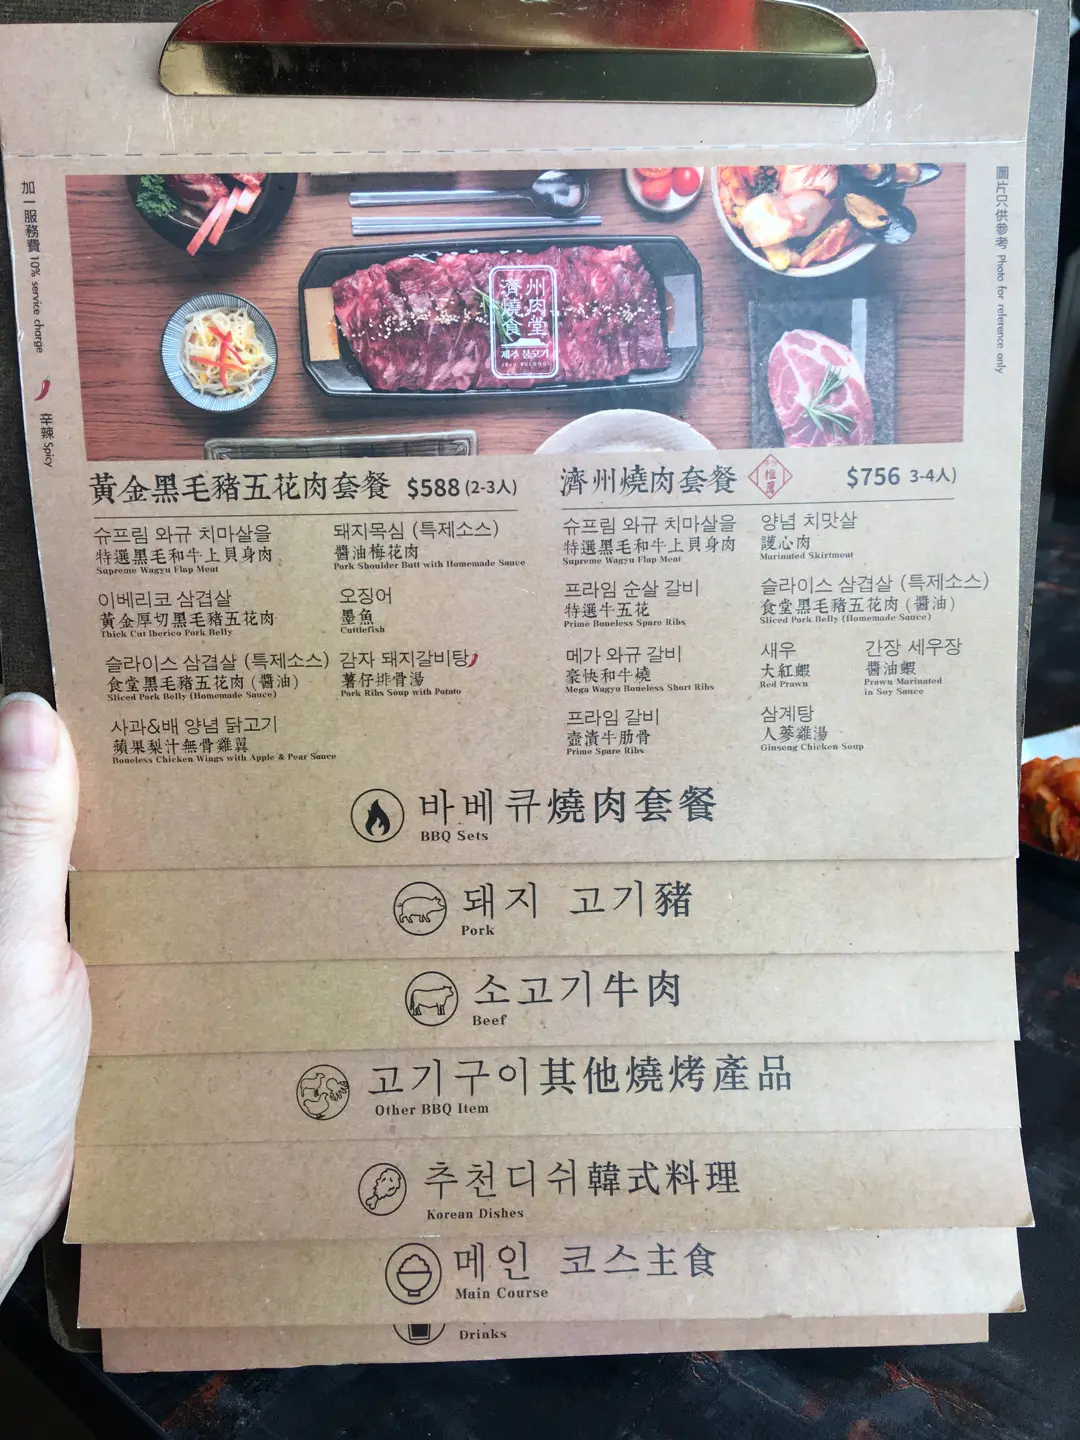 加一服務費 10% service charge
辛辣 Spicy
圖片只供參考 Photo for reference only
濟州
燒肉
食堂
제주 불고기
JEJU BULGOGI
黃金黑毛豬五花肉套餐 $588 (2-3人)
슈프림 와규 치마살을
特選黑毛和牛上貝身肉
Supreme Wagyu Flap Meat
돼지목심 (특제소스)
醬油梅花肉
Pork Shoulder Butt with Homemade Sauce
이베리코 삼겹살
黃金厚切黑毛豬五花肉
Thick Cut Iberico Pork Belly
오징어
墨魚
Cuttlefish
슬라이스 삼겹살 (특제소스)
食堂黑毛豬五花肉 (醬油)
Sliced Pork Belly (Homemade Sauce)
감자 돼지갈비탕
薯仔排骨湯
Pork Ribs Soup with Potato
사과&배 양념 닭고기
蘋果梨汁無骨雞翼
Boneless Chicken Wings with Apple & Pear Sauce
濟州燒肉套餐 $756 3-4人)
슈프림 와규 치마살을
特選黑毛和牛上貝身肉
Supreme Wagyu Flap Meat
양념 치맛살
護心肉
Marinated Skirtmeat
프라임 순살 갈비
特選牛五花
Prime Boneless Spare Ribs
슬라이스 삼겹살 (특제소스)
食堂黑毛豬五花肉 (醬油)
Sliced Pork Belly (Homemade Sauce)
메가 와규 갈비
豪快和牛燒
Mega Wagyu Boneless Short Ribs
새우
大紅蝦
Red Prawn
간장 세우장
醬油蝦
Prawn Marinated
in Soy Sauce
프라임 갈비
壺漬牛肋骨
Prime Spare Ribs
삼계탕
人蔘雞湯
Ginseng Chicken Soup
바베큐燒肉套餐
BBQ Sets
돼지 고기豬
Pork
소고기牛肉
Beef
고기구이其他燒烤產品
Other BBQ Item
추천디쉬韓式料理
Korean Dishes
메인 코스主食
Main Course
Drinks